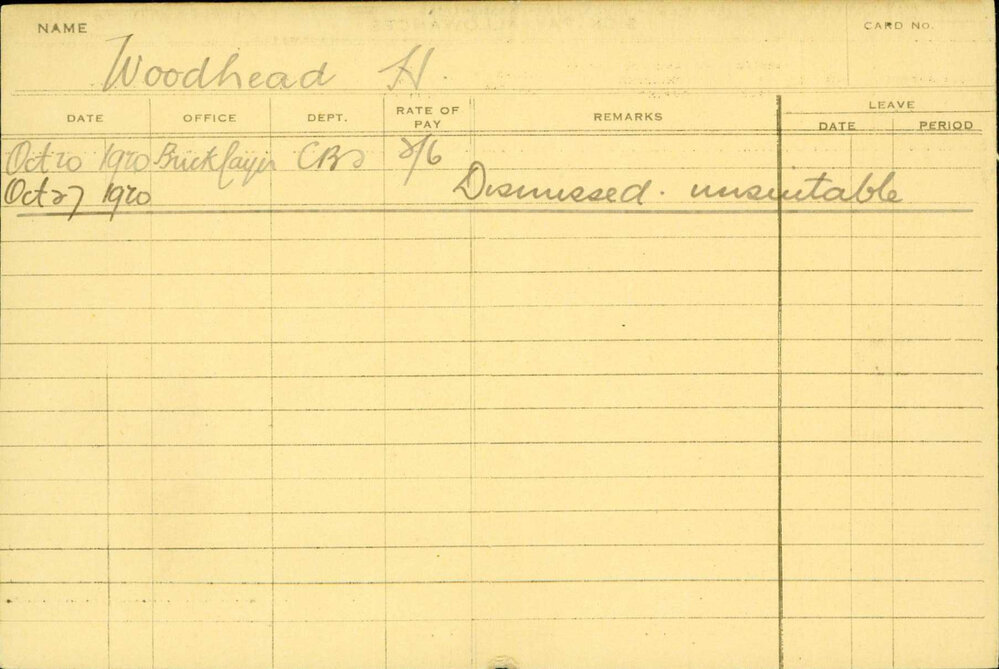 NAME
CARD No.
Woodhead H
DATE OFFICE DEPT. RATE OF PAY REMARKS LEAVE
DATE PERIOD
Oct 20 1920 Bricklayer 2/6
Oct 27 1920 Dismissed. unsuitable